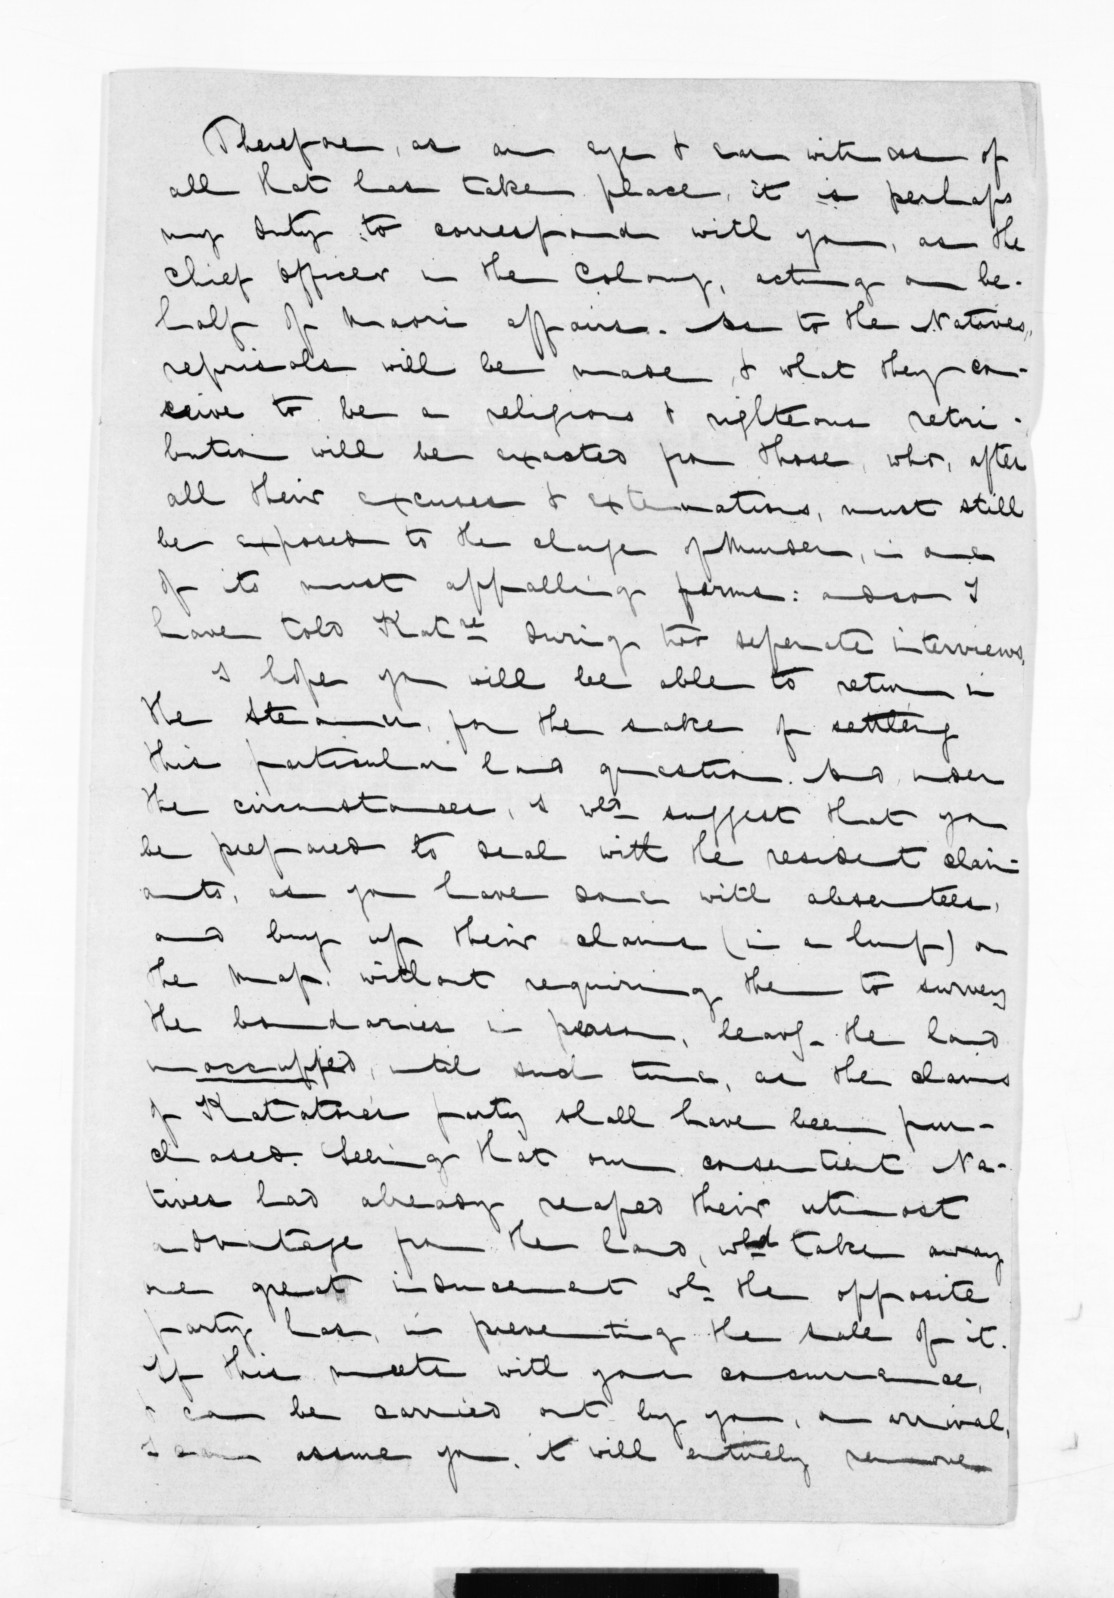 Therefore, as an eye & ear witness of
all that has taken place, it is perhaps
my duty to correspond with you, as the
Chief Officer in the Colony, acting on be-
half of Maori affairs. As to the Natives,
reprisals will be made, & what they con-
ceive to be a religious & righteous retri-
bution will be exacted from those, who, after
all their excuses & extenuations, must still
be exposed to the charge of Murder, in one
of its most appalling forms: and so I
have told Kat^re during two seperate interviews.
I hope you will be able to return in
the Steamer, for the sake of settling
this particular land question. And under
the circumstances, I wld suggest that you
be prepared to deal with the resident claim-
ants, as you have done with absentees,
and buy up their claims (in a lump) on
the Map, without requiring them to survey
the boundaries in person, leavg the land
unoccupied, until such time, as the claims
of Katatore's party shall have been pur-
chased. Seeing that our consentient Na-
tives had already reaped their utmost
advantage from the land, wld take away
one great inducement wh the opposite
party has, in preventing the sale of it.
If this meets with your concurrence,
& can be carried out by you, on arrival,
I can assure you, it will entirely remove